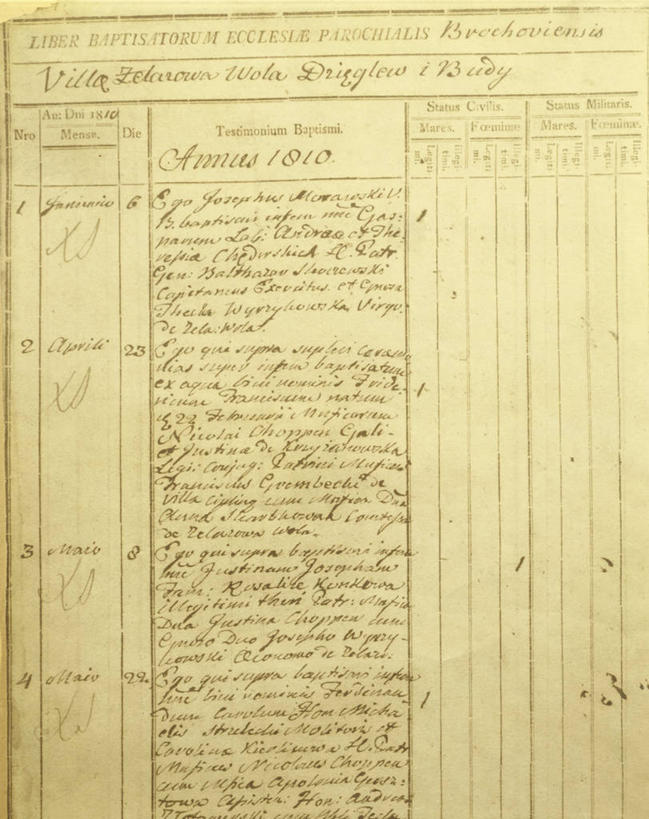 LIBER BAPTISATORUM ECCLESIÆ PAROCHIALIS Brochoviensis
Villæ Zelazowa Wola Dzięglew i Budy
Nro
An: Dni 1810
Mense.
Die
Testimonium Baptismi.
Annus 1810.
Status Civilis.
Status Militaris.
Mares.
Fœminæ
Mares.
Fœminæ.
Legiti mi.
Illegi timi.
Legiti
Illegi timi.
Legiti mi.
Illegi timi.
Legiti
Illegi timi.
1 Januario 6
Ego Josephus Morawski V.
B. baptisavi infem nne Gas-
parem Lab: Andreæ et The-
ressiæ
Gen: Balthazar
Capitaneus Exercitus et Gnosa
Thecla Wyrzykowska Virgo
de Zela: Wola.
1
2 Aprili 23
Ego qui supra suplevi ceremo
nias super infem baptisatum
ex aqua bini nominis Fride-
ricum Franciscum natum
22 Februarii Magnificorum
Nicolai Choppen Gali-
et Justinæ de Krzyżanowska
Legi: Conjug: Patrini Mficus
Franciscus Grembecki de
Villa Ciepliny cum Mgfica Dna
Anna Skarbkowna Comitissa
de Zelazowa Wola.
1
3 Maio 8
Ego qui supra baptisavi infem
nne Justinam Josepham
Fam: Rosaliæ
illegitimi thori Patr: Mgfica
Dna Justina Choppen cum
Gnoso Dno Josepho Wyrzy-
kowski Œconomo de Zelazo:
1
4 Maio 22.
Ego qui supra baptisavi infem
nne bini nominis Ferdinan
dum Carolum Hon Micha
elis Strzelecki Molitoris et
Carolinæ
Mgficus Nicolaus Choppen
cum Mfica Apolonia
Assisten: Hon: Andreas
1